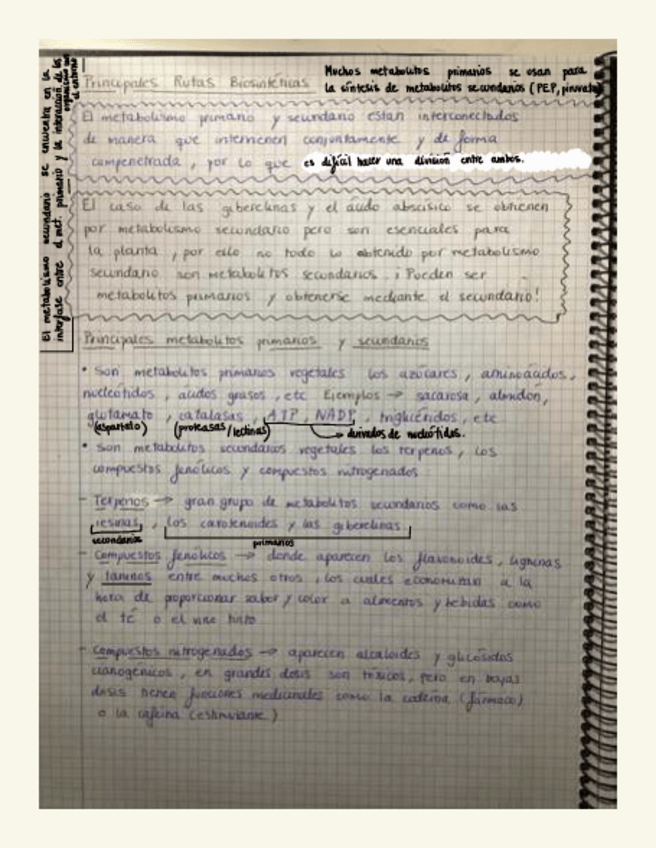 El metabolismo secundario se encuentra en la
interfase entre el met. primario y la interacción de los
organismos con
el entorno
Principales Rutas Biosintéticas
Muchos metabolitos primarios se usan para
la síntesis de metabolitos secundarios (PEP, piruvato)
El metabolismo primario y secundario están interconectados
de manera que intervienen conjuntamente y de forma
compenetrada, por lo que es difícil hacer una división entre ambos.
El caso de las giberelinas y el ácido abscísico se obtienen
por metabolismo secundario pero son esenciales para
la planta, por ello no todo lo obtenido por metabolismo
secundario son metabolitos secundarios. ¡Pueden ser
metabolitos primarios y obtenerse mediante el secundario!
Principales metabolitos primarios y secundarios
• Son metabolitos primarios vegetales los azúcares, aminoácidos,
nucleótidos, ácidos grasos, etc Ejemplos → sacarosa, almidón,
glutamato, catalasas, ATP, NADP, triglicéridos, etc
(aspartato) (proteasas/lectinas) → derivados de nucleótidos.
• Son metabolitos secundarios vegetales los terpenos, los
compuestos fenólicos y compuestos nitrogenados
- Terpenos → gran grupo de metabolitos secundarios como las
resinas, los carotenoides y las giberelinas
secundarios primarios
- Compuestos fenólicos → donde aparecen los flavonoides, ligninas
y taninos entre muchos otros, los cuales economizan a la
hora de proporcionar sabor y color a alimentos y bebidas como
el té o el vino tinto
- Compuestos nitrogenados → aparecen alcaloides y glucósidos
cianogénicos, en grandes dosis son tóxicos, pero en bajas
dosis tienen funciones medicinales como la codeína (fármaco)
o la cafeína (estimulante)